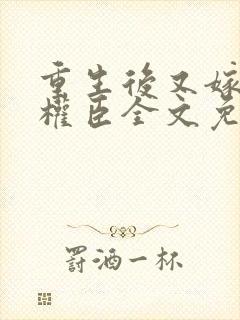 重生後又嫁
權臣全文免
罰酒一杯